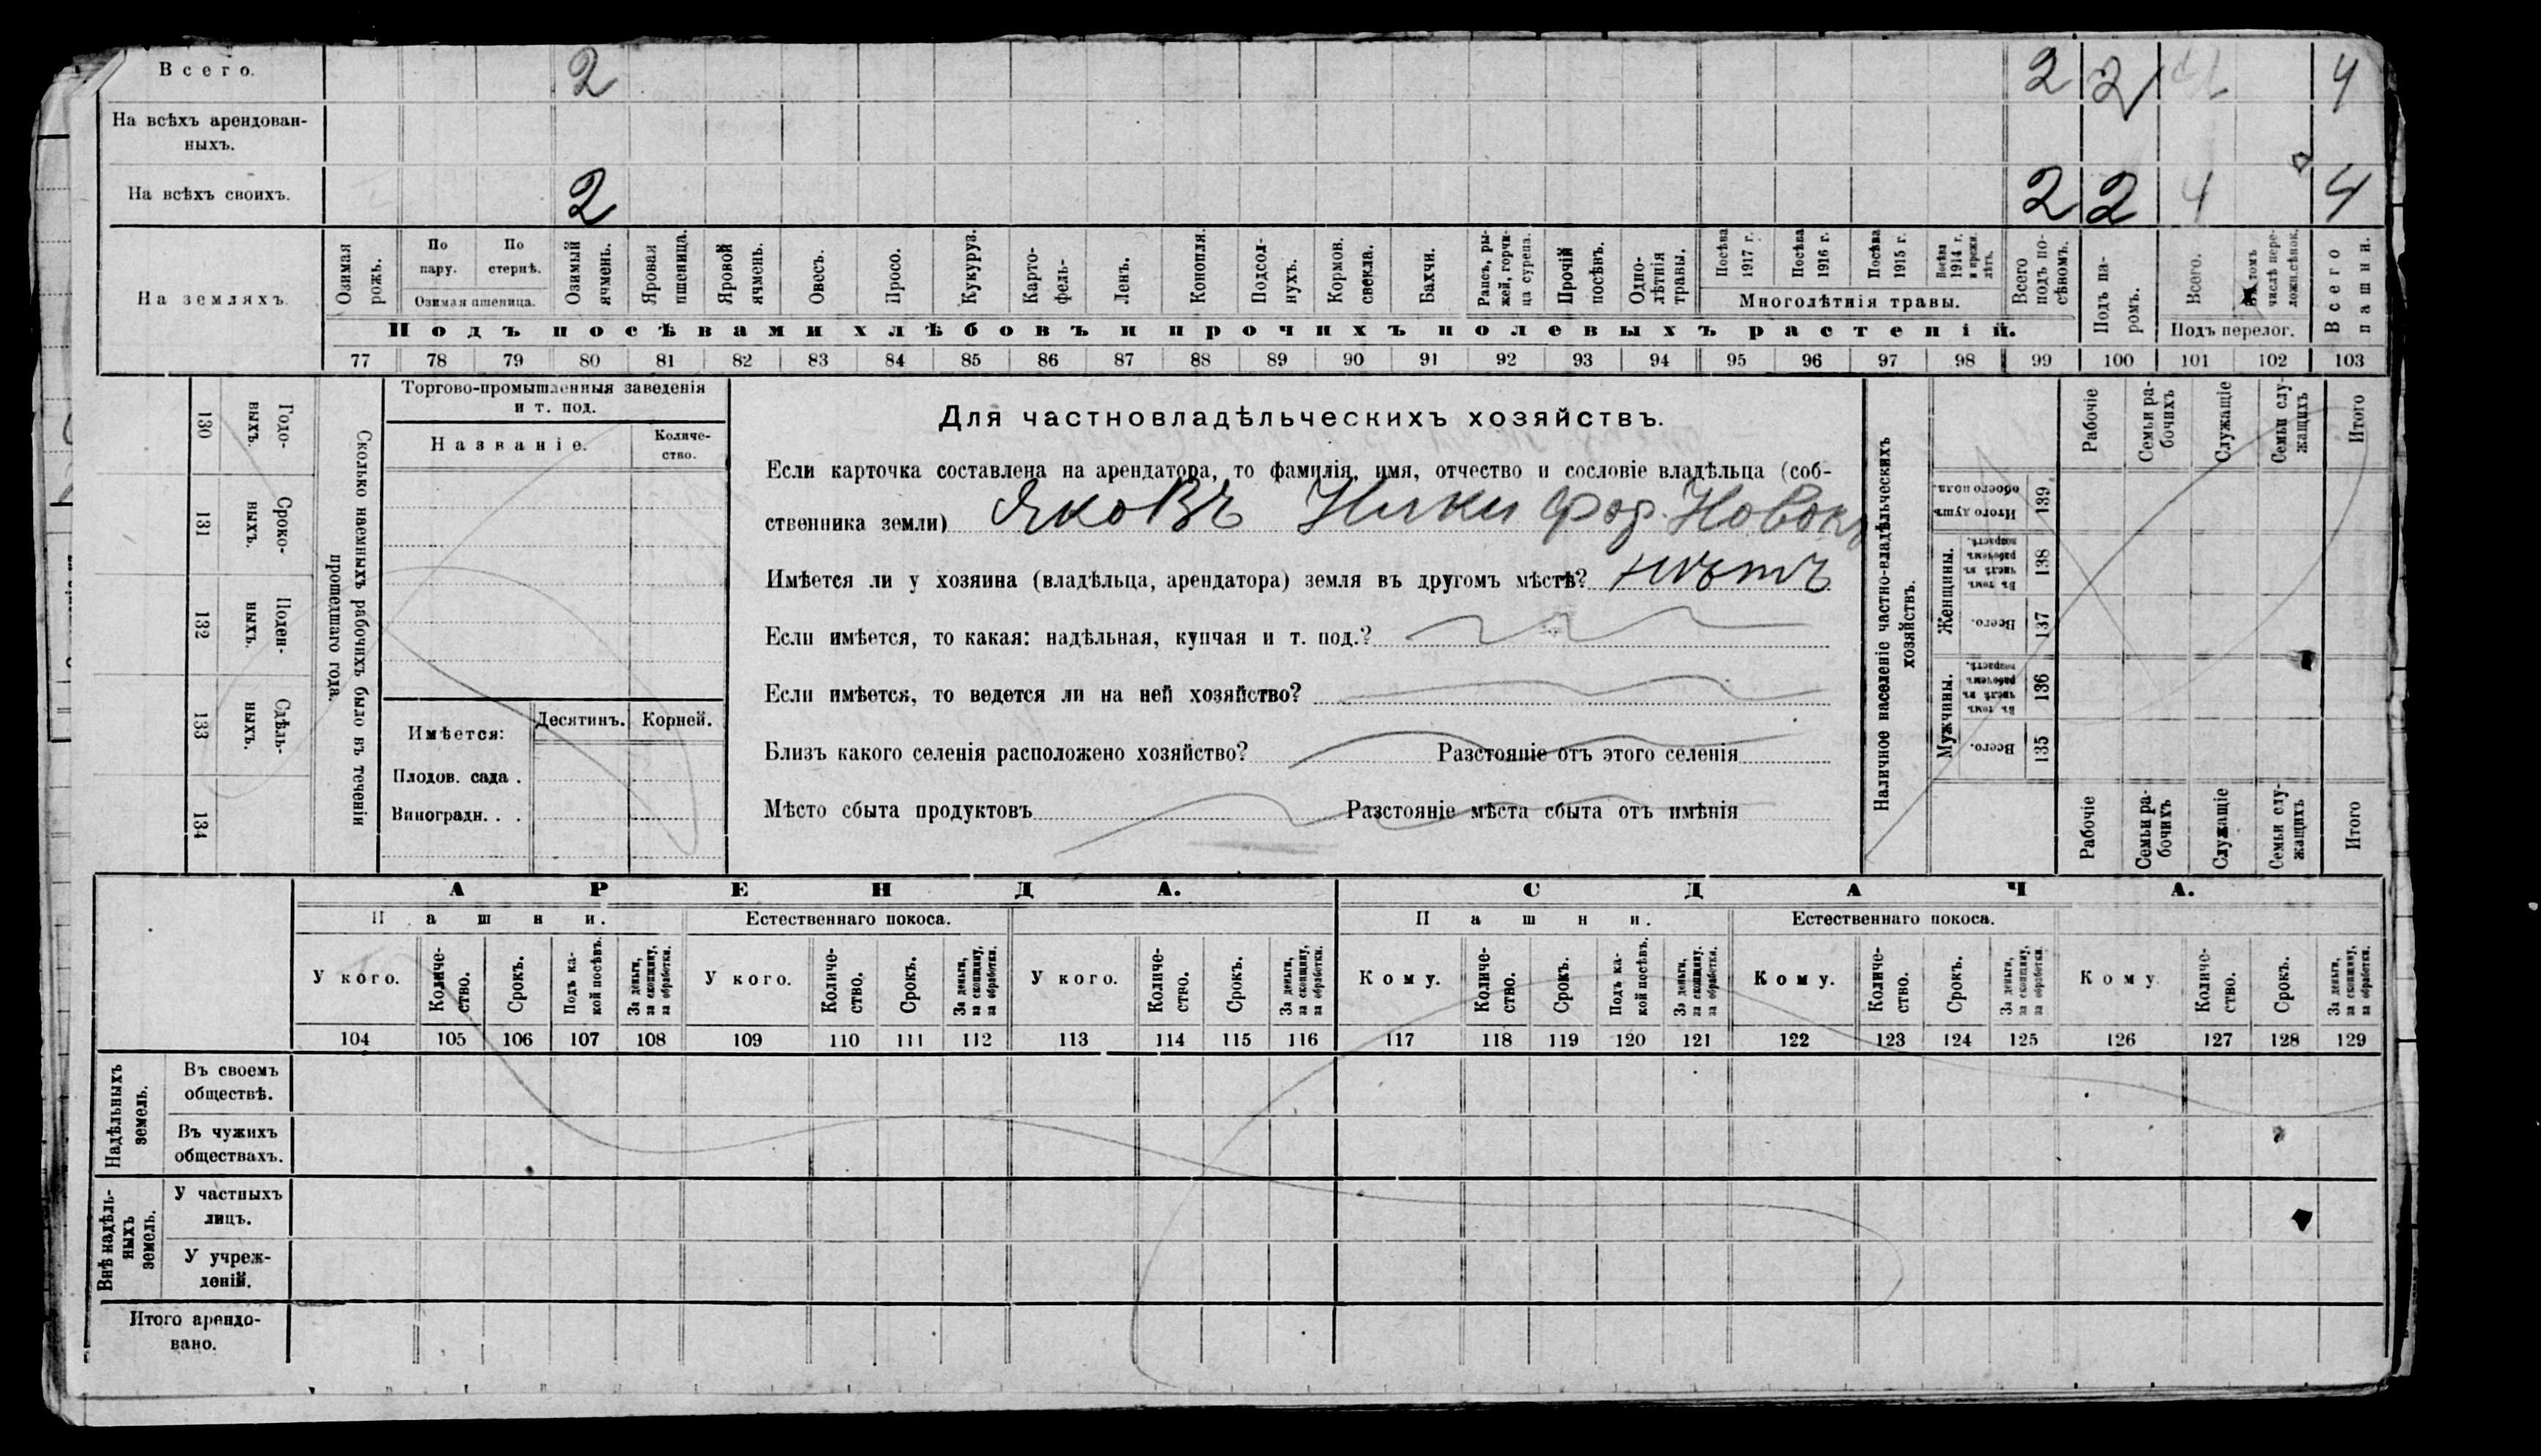 Всего. 2 2 2 4
На всѣхъ арендован-
ныхъ.
На всѣхъ своихъ. 2 2 2 4 4
На земляхъ.
Озимая рожь.
По пару.
По стернѣ.
Озимая пшеница.
Озимый ячмень.
Яровая пшеница.
Яровой ячмень.
Овесъ.
Просо.
Кукуруз.
Карто-
фель-
Ленъ.
Конопля.
Подсол-
нухъ.
Кормов.
свекла.
Бахчи.
Рапсъ, ры-
жей, горчи-
ца сурепа.
Прочій
посѣвъ.
Одно-
лѣтнія
травы.
Посѣва
1917 г.
Посѣва
1916 г.
Посѣва
1915 г.
Посѣва
1914 г.
и прежн.
лѣтъ.
Многолѣтнія травы.
Всего
подъ по-
сѣвомъ.
Подъ па-
ромъ.
Всего.
числѣ пере-
ложн.сѣнок.
Подъ перелог.
Всего
пашни.
Подъ посѣвами хлѣбовъ и прочихъ полевыхъ растеній.
77 78 79 80 81 82 83 84 85 86 87 88 89 90 91 92 93 94 95 96 97 98 99 100 101 102 103
130 Годо-
выхъ.
131 Сроко-
ныхъ.
132 Поден-
ныхъ.
133 Сдѣль-
ныхъ.
134
Сколько наемныхъ рабочихъ было въ теченіи
прошедшаго года.
Торгово-промышленныя заведенія
и т. под.
Названіе.
Количе-
ство.
Имѣется:
Десятинъ. Корней.
Плодов. сада .
Виноградн. . .
Для частновладѣльческихъ хозяйствъ.
Если карточка составлена на арендатора, то фамилія, имя, отчество и сословіе владѣльца (соб-
ственника земли) Яковъ Никифор.
Имѣется ли у хозяина (владѣльца, арендатора) земля въ другомъ мѣстѣ? нѣтъ
Если имѣется, то какая: надѣльная, купчая и т. под.?
Если имѣется, то ведется ли на ней хозяйство?
Близъ какого селенія расположено хозяйство? Разстояніе отъ этого селенія
Мѣсто сбыта продуктовъ Разстояніе мѣста сбыта отъ имѣнія
Наличное населеніе частно-владѣльческихъ
хозяйствъ.
Рабочіе
Семьи ра-
бочихъ
Служащіе
Семьи слу-
жащихъ
Итого
Итого душъ
обоего пола.
139
Женщины.
Въ томъ
числѣ въ
рабочемъ
возрастѣ.
138
Всего.
137
Мужчины.
Въ томъ
числѣ въ
рабочемъ
возрастѣ.
136
Всего.
135
Рабочіе
Семьи ра-
бочихъ
Служащіе
Семьи слу-
жащихъ
Итого
АРЕНДА.
СДАЧА.
Пашни.
Естественнаго покоса.
Пашни.
Естественнаго покоса.
У кого.
Количе-
ство.
Срокъ.
Подъ ка-
кой посѣвъ.
За деньги,
за скопщину,
за обработки.
У кого.
Количе-
ство.
Срокъ.
За деньги,
за скопщину,
за обработки.
У кого.
Количе-
ство.
Срокъ.
За деньги,
за скопщину,
за обработки.
Кому.
Количе-
ство.
Срокъ.
Подъ ка-
кой посѣвъ.
За деньги,
за скопщину,
за обработки.
Кому.
Количе-
ство.
Срокъ.
За деньги,
за скопщину,
за обработки.
Кому.
Количе-
ство.
Срокъ.
За деньги,
за скопщину,
за обработки.
104 105 106 107 108 109 110 111 112 113 114 115 116 117 118 119 120 121 122 123 124 125 126 127 128 129
Надѣльныхъ
земель.
Въ своемъ
обществѣ.
Въ чужихъ
обществахъ.
Внѣ надѣль-
ныхъ
земель.
У частныхъ
лицъ.
У учреж-
деній.
Итого арендо-
вано.